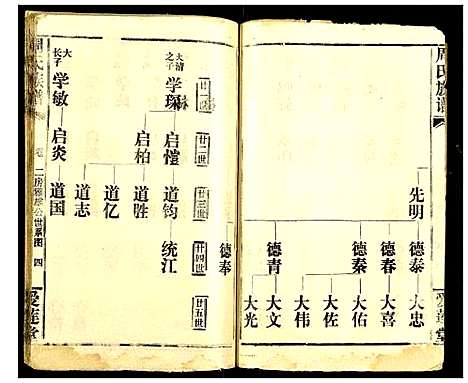 周氏族谱
爱莲堂
先明
德泰
德春
德秦
德青
德奉
大忠
大喜
大佑
大佐
大伟
大文
大光
廿一世
廿二世
廿三世
廿四世
廿五世
大清之子
学琛
启恺
启柏
道钧
道胜
道亿
道志
统江
大长子
学敏
启炎
道国
周氏族谱
二房
公世系图
四
爱莲堂